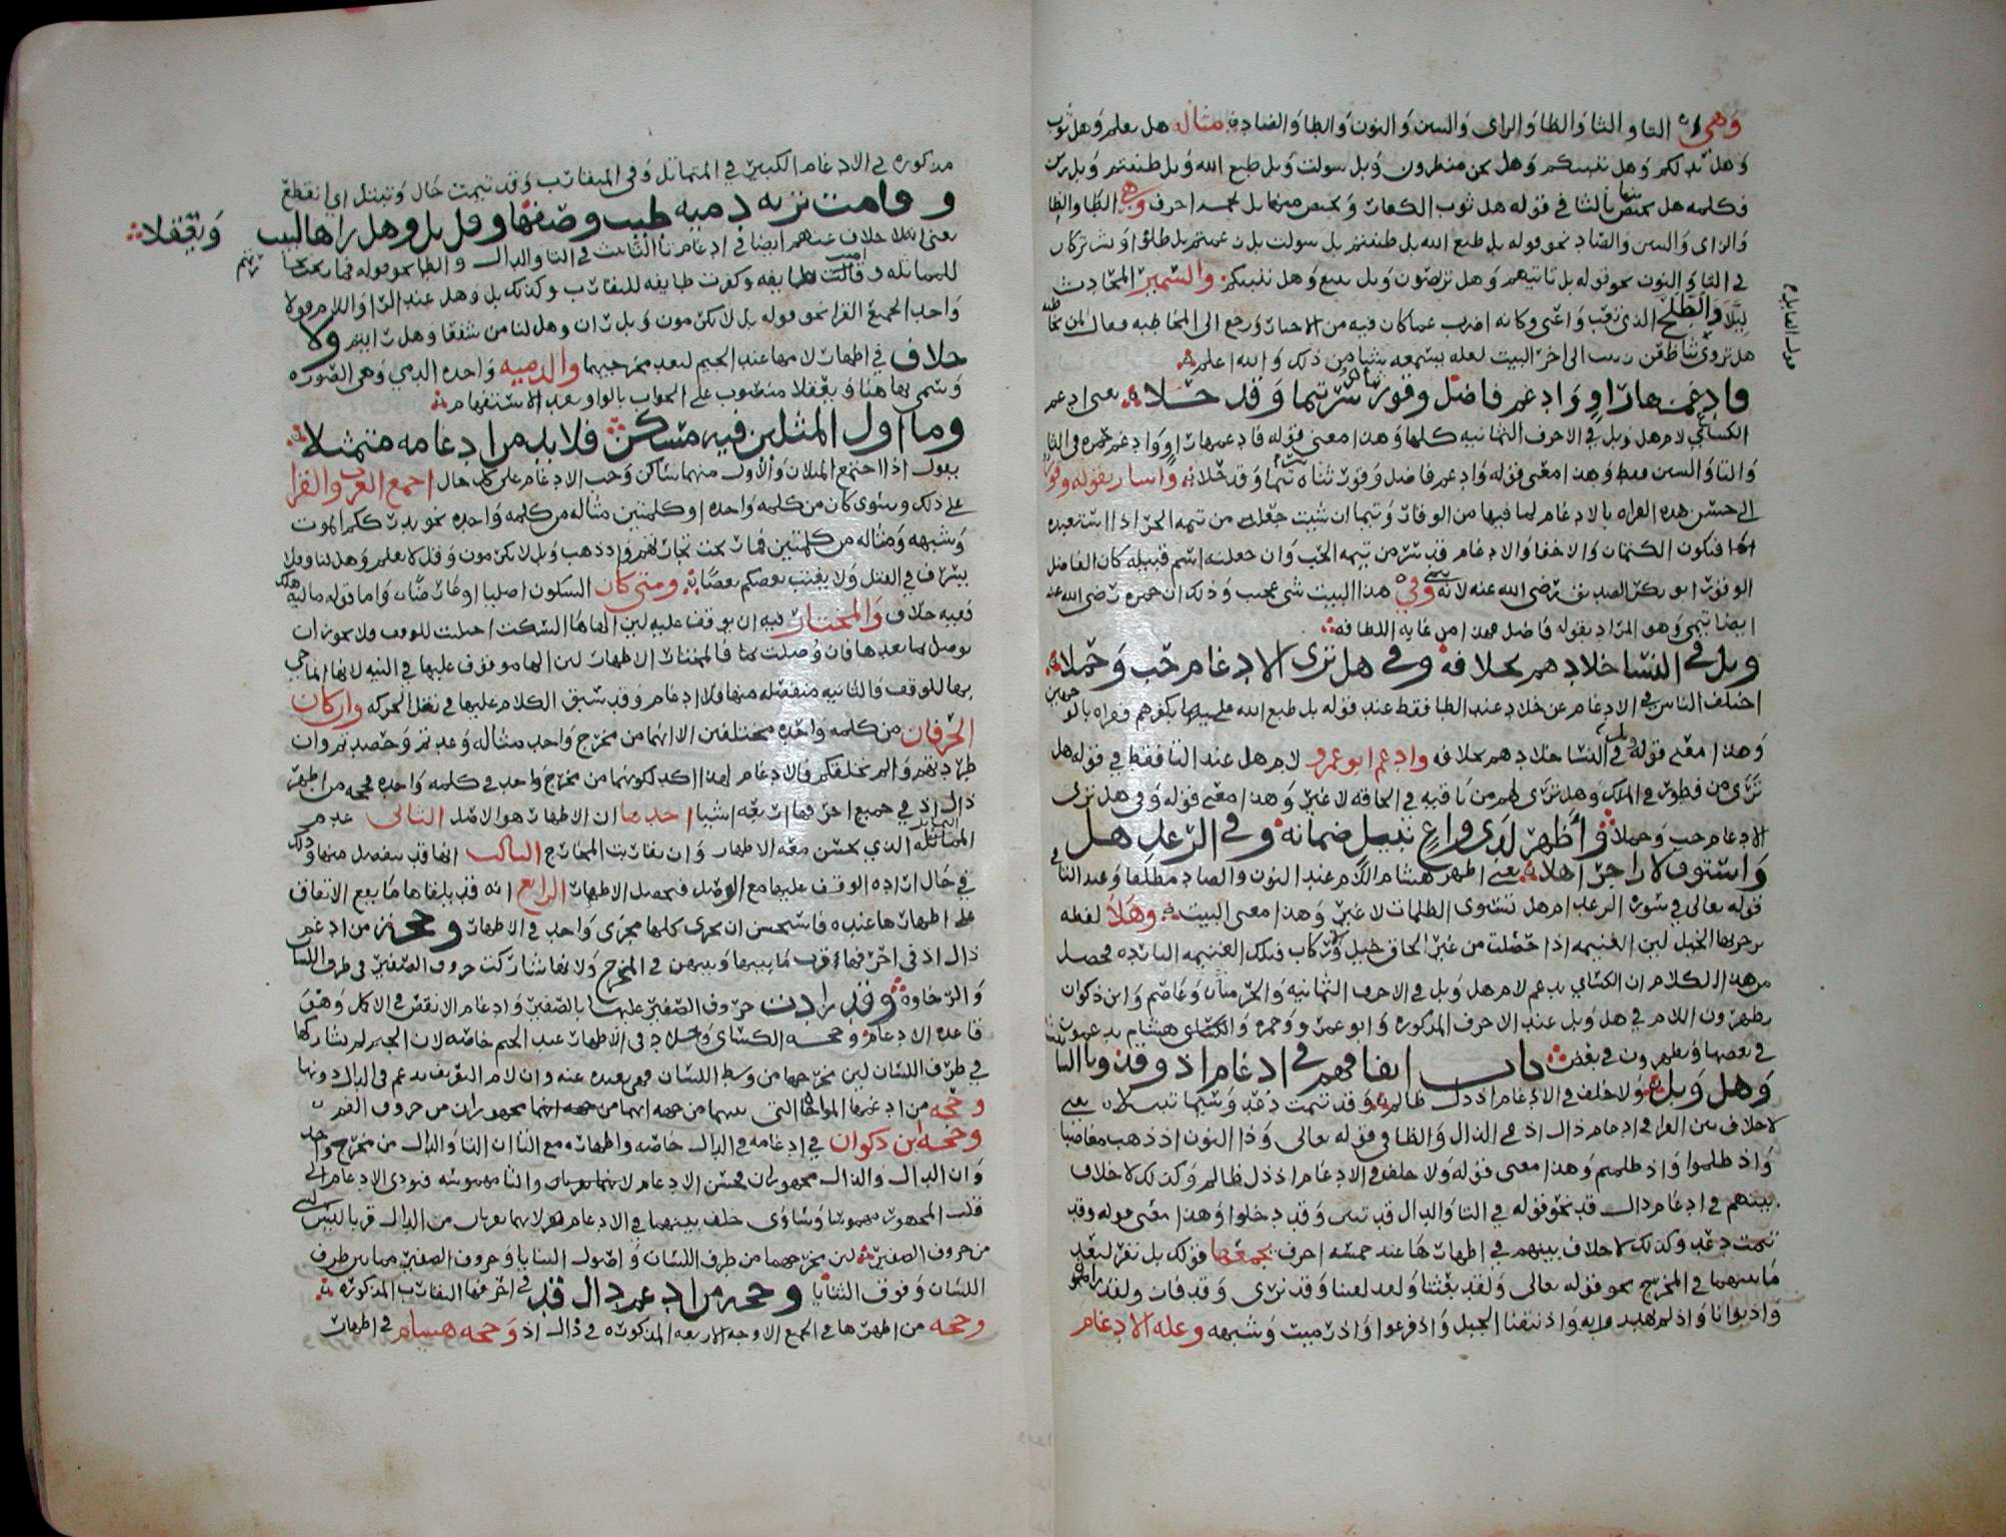 وهي التا والثا والظا والزاي والسين والنون والطا والضاد مثاله هل يعلم وهل ثوب
وهل ندلكم وهل ننبيكم وهل نحن منظرون وبل سولت وبل طبع الله وبل ظننتم وبل زين
فكلمه هل تختص بالثا في قوله هل ثوب الكفار وتختص منها بل بخمسه احرف وهي الظا والطا
والزاي والسين والضاد نحو قوله بل طبع الله بل ظننتم بل سولت بل زعمتم بل ضلوا ويشتركان
في التا والنون نحو قوله بل تاتيهم وهل تربصون وبل نتبع وهل ننبيكم والسمير المحادث
ليلا والطلح الذي تعب واعيى وكانه اضرب عما كان فيه من الاخبار ورجع الى المخاطبه فقال
هل تروي ثنا ظعن زينب الى اخر البيت لعله يسمعه شيا من ذلك والله اعلم
فادغمها راو وادغم فاضل وقور ثناه سر تيما وقد حلا يعني ادغم
الكسائي لام هل وبل في الاحرف الثمانيه كلها وهذا معنى قوله فادغمها راو وادغم حمزه في الثا
والتا والسين فقط وهذا معنى قوله وادغم فاضل وقور ثناه سر تيما وقد حلا واشار بقوله وقور
الى حسن هذه القراه بالادغام لما فيها من الوقار وتيما ان شيت جعلته من تيمه الحب اذا استعبده
فيكون الكتمان والاخفا والادغام قد سر من تيمه الحب وان جعلته اسم قبيله كان الفاضل
الوقور ابو بكر الصديق رضي الله عنه لانه تيمي وفي هذا البيت شي عجيب وذلك ان حمزه رضي الله عنه
ايضا تيمي وهو المراد بقوله فاضل فهذا من غايه اللطافه
وبل في النسا خلادهم بخلافه وفي هل ترى الادغام حب وحملا
اختلف الناس في الادغام عن خلاد عند الطا فقط عند قوله بل طبع الله عليها بكفرهم فقراه بالوجهين
وهذا معنى قوله وبل في النسا خلادهم بخلافه وادغم ابو عمرو لام هل عند التا فقط في قوله هل
ترى من فطور في الملك وهل ترى لهم من باقيه في الحاقه لا غير وهذا معنى قوله وفي هل ترى
الادغام حب وحملا واظهر لدى واع نبيل ضمانه وفي الرعد هل
واستوف لا زاجرا هلا يعني اظهر هشام اللام عند النون والضاد مطلقا وعند التا في
قوله تعالى في سوره الرعد ام هل تستوي الظلمات لا غير وهذا معنى البيت وهلا لفظه
يزجر بها الخيل
من هذا الكلام ان الكسائي يدغم لام هل وبل في الاحرف الثمانيه والحرميان وعاصم وابن ذكوان
يظهرون اللام في هل وبل عند الاحرف المذكوره وابو عمرو وحمزه وهشام يدغمون
في بعضها ويظهرون في بعض باب اتفاقهم في ادغام اذ وقد وتا التانيث
وهل وبل ولا خلف في الادغام اذ ذل ظالم وقد تيمت دعد وسيما تبتلا يعني
لا خلاف بين القرا في ادغام ذال اذ في الذال والظا في قوله تعالى وذا النون اذ ذهب مغاضبا
واذ ظلموا واذ ظلمتم وهذا معنى قوله ولا خلف في الادغام اذ ذل ظالم وكذلك لا خلاف
بينهم في ادغام دال قد نحو قوله في التا والدال قد تبين وقد دخلوا وهذا معنى قوله وقد
تيمت دعد وكذلك لا خلاف بينهم في اظهارها عند خمسه احرف يجمعها قولك بل نفر لبعد
ما بينهما في المخرج نحو قوله تعالى ولقد بعثنا ولقد لقينا وقد نرى وقد فات ولقد راه نحو
واذ بوانا واذ لم يهتدوا به واذ نتقنا الجبل واذ فرقنا واذ رميت وشبهه وعله الادغام
مذكوره في الادغام الكبير في المتماثل وفي المتقارب وقد تيمت حال وتبتل اي انقطع
وقامت تريه دميه طيب وصفها وقل بل وهل راها لبيب ويعقلا
يعني بلا خلاف عنهم ايضا في ادغام تا التانيث في التا والدال والطا نحو قوله فما ربحت تجارتهم
للمماثله وقالت طايفه وكفرت طايفه للتقارب وكذلك بل وهل عند الرا واللام قولا
واحدا لجميع القرا نحو قوله بل لا تكرمون وبل ران وهل لنا من شفعا وهل رايتم ولا
خلاف في اظهار لامها عند الجيم لبعد مخرجيهما والدميه واحده الدمي وهي الصوره
وسمي بها هنا ويعقلا منصوب على الجواب بالواو بعد الاستفهام
وما اول المثلين فيه مسكن فلا بد من ادغامه متمثلا
يقول اذا اجتمع المثلان والاول منهما ساكن وجب الادغام على كل حال اجمع العرب والقرا
على ذلك وسوى كان من كلمه واحده او كلمتين مثاله من كلمه واحده نحو يدرككم الموت
وشبهه ومثاله من كلمتين فما ربحت تجارتهم واذ ذهب وبل لا تكرمون وقل لا يعلم وهل لنا وفلا
يسرف في القتل ولا يغتب بعضكم بعضا ومتى كان السكون اصليا او عارضا واما قوله ماليه هلك
ففيه خلاف والمختار فيه ان يوقف عليه لان الها ها السكت اجتلبت للوقف ولا يجوز ان
يوصل بما بعدها فان وصلت فالمختار الاظهار لان الها موقوف عليها في النيه لانها انما جي
بها للوقف والثانيه منفصله منها فلا ادغام وقد سبق الكلام عليها في نقل الحركه وان كان
الحرفان من كلمه واحده مختلفين الا انهما من مخرج واحد مثاله وعدتم وحصدتم وان
طردتهم والم نخلقكم فالادغام لكونهما من مخرج واحد وفي كلمه واحده فحجه من اظهر
ذال اذ في جميع احرفها اربعه اشيا احدها ان الاظهار هو الاصل الثاني عدم
المماثله الذي يحسن معه الاظهار وان تقاربت المخارج الثالث انها قد ينفصل منها وذلك
في حال اراده الوقف عليها مع الوصل فيحصل الاظهار الرابع انه قد يلقاها ما يقع الاتفاق
على اظهارها عنده فاستحسن ان تجرى كلها مجرى واحد في الاظهار وحجه من ادغم
ذال اذ في احرفها قرب ما بينها وبينهن في المخرج ولانها شاركت حروف الصفير في طرف اللسان
والرخاوه وقد زادت حروف الصفير عليها بالصفير وادغام الانقص في الاكمل وهي
قاعده الادغام وحجه الكسائي وخلاد في الاظهار عند الجيم خاصه لان الجيم لم تشاركها
في طرف اللسان لان مخرجها من وسط اللسان فهي بعيده عنه وان لام التعريف تدغم في الذال دونها
وحجه من ادغمها المواخاه التي بينهما من جهه انهما مجهوران من حروف الفم
وحجه ابن ذكوان في ادغامه في الدال خاصه واظهاره مع التا ان التا والدال من مخرج واحد
وان الدال والذال مجهوران فحسن الادغام والتا مهموسه فيودي الادغام الى
قلب المجهور مهموسا
من حروف الصفير لان مخرجهما من طرف اللسان واصول الثنايا وحروف الصفير مما بين طرف
اللسان وفوق الثنايا وحجه من ادغم دال قد في احرفها التقارب المذكوره
وحجه من اظهرها في الجميع الاوجه الاربعه المذكوره في ذال اذ وحجه هشام في اظهار